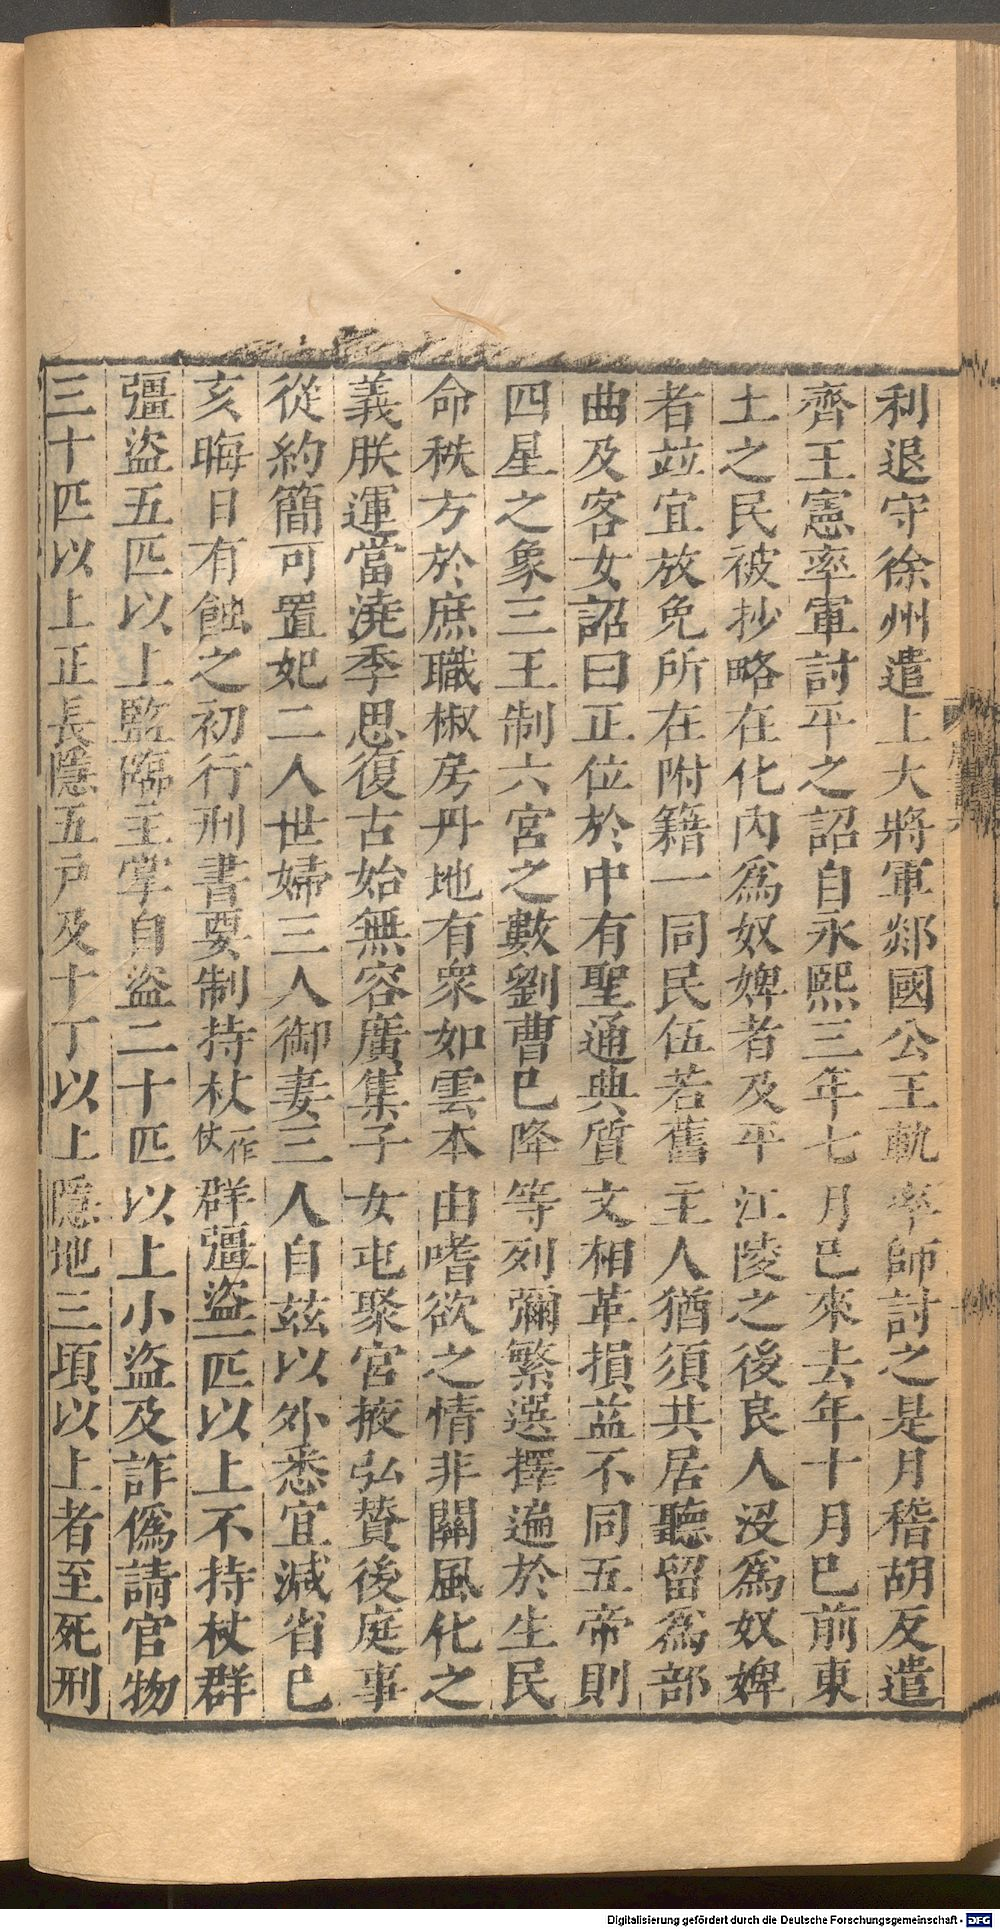 利退守徐州遣上大將軍郯國公王軌率師討之是月稽胡反遣
齊王憲率軍討平之詔自永熙三年七月巳來去年十月巳前東
土之民被抄略在化內爲奴婢者及平江陵之後良人沒爲奴婢
者並宜放免所在附籍一同民伍若舊主人猶須共居聽留爲部
曲及客女詔曰正位於中有聖通典質文相革損益不同五帝則
四星之象三王制六宮之數劉曹巳降等列彌繁選擇遍於生民
命秩方於庶職椒房丹地有衆如雲本由嗜欲之情非關風化之
義朕運當澆季思復古始無容廣集子女屯聚宮掖弘贊後庭事
從約簡可置妃二人世婦三人御妻三人自茲以外悉宜減省巳
亥晦日有蝕之初行刑書要制持杖一作仗群彊盜一匹以上不持杖群
彊盜五匹以上監臨主掌自盜二十匹以上小盜及詐僞請官物
三十匹以上正長隱五戶及十丁以上隱地三頃以上者至死刑
Digitalisierung gefördert durch die Deutsche Forschungsgemeinschaft - DFG